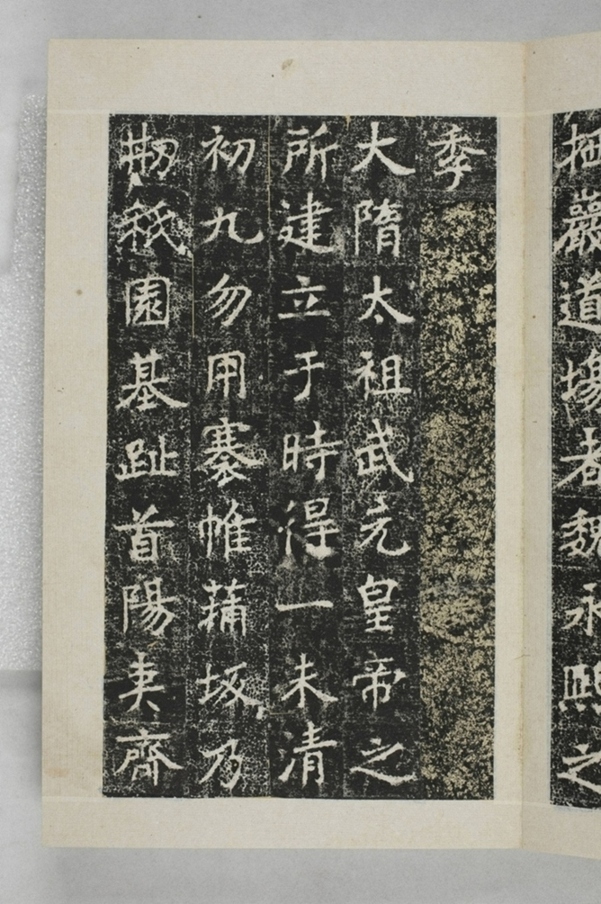 栖巖道場者魏永熙之
季
大隋太祖武元皇帝之
所建立于時得一未清
初九勿用褰帷蒱坂乃
剏祇園基趾首陽夷齊